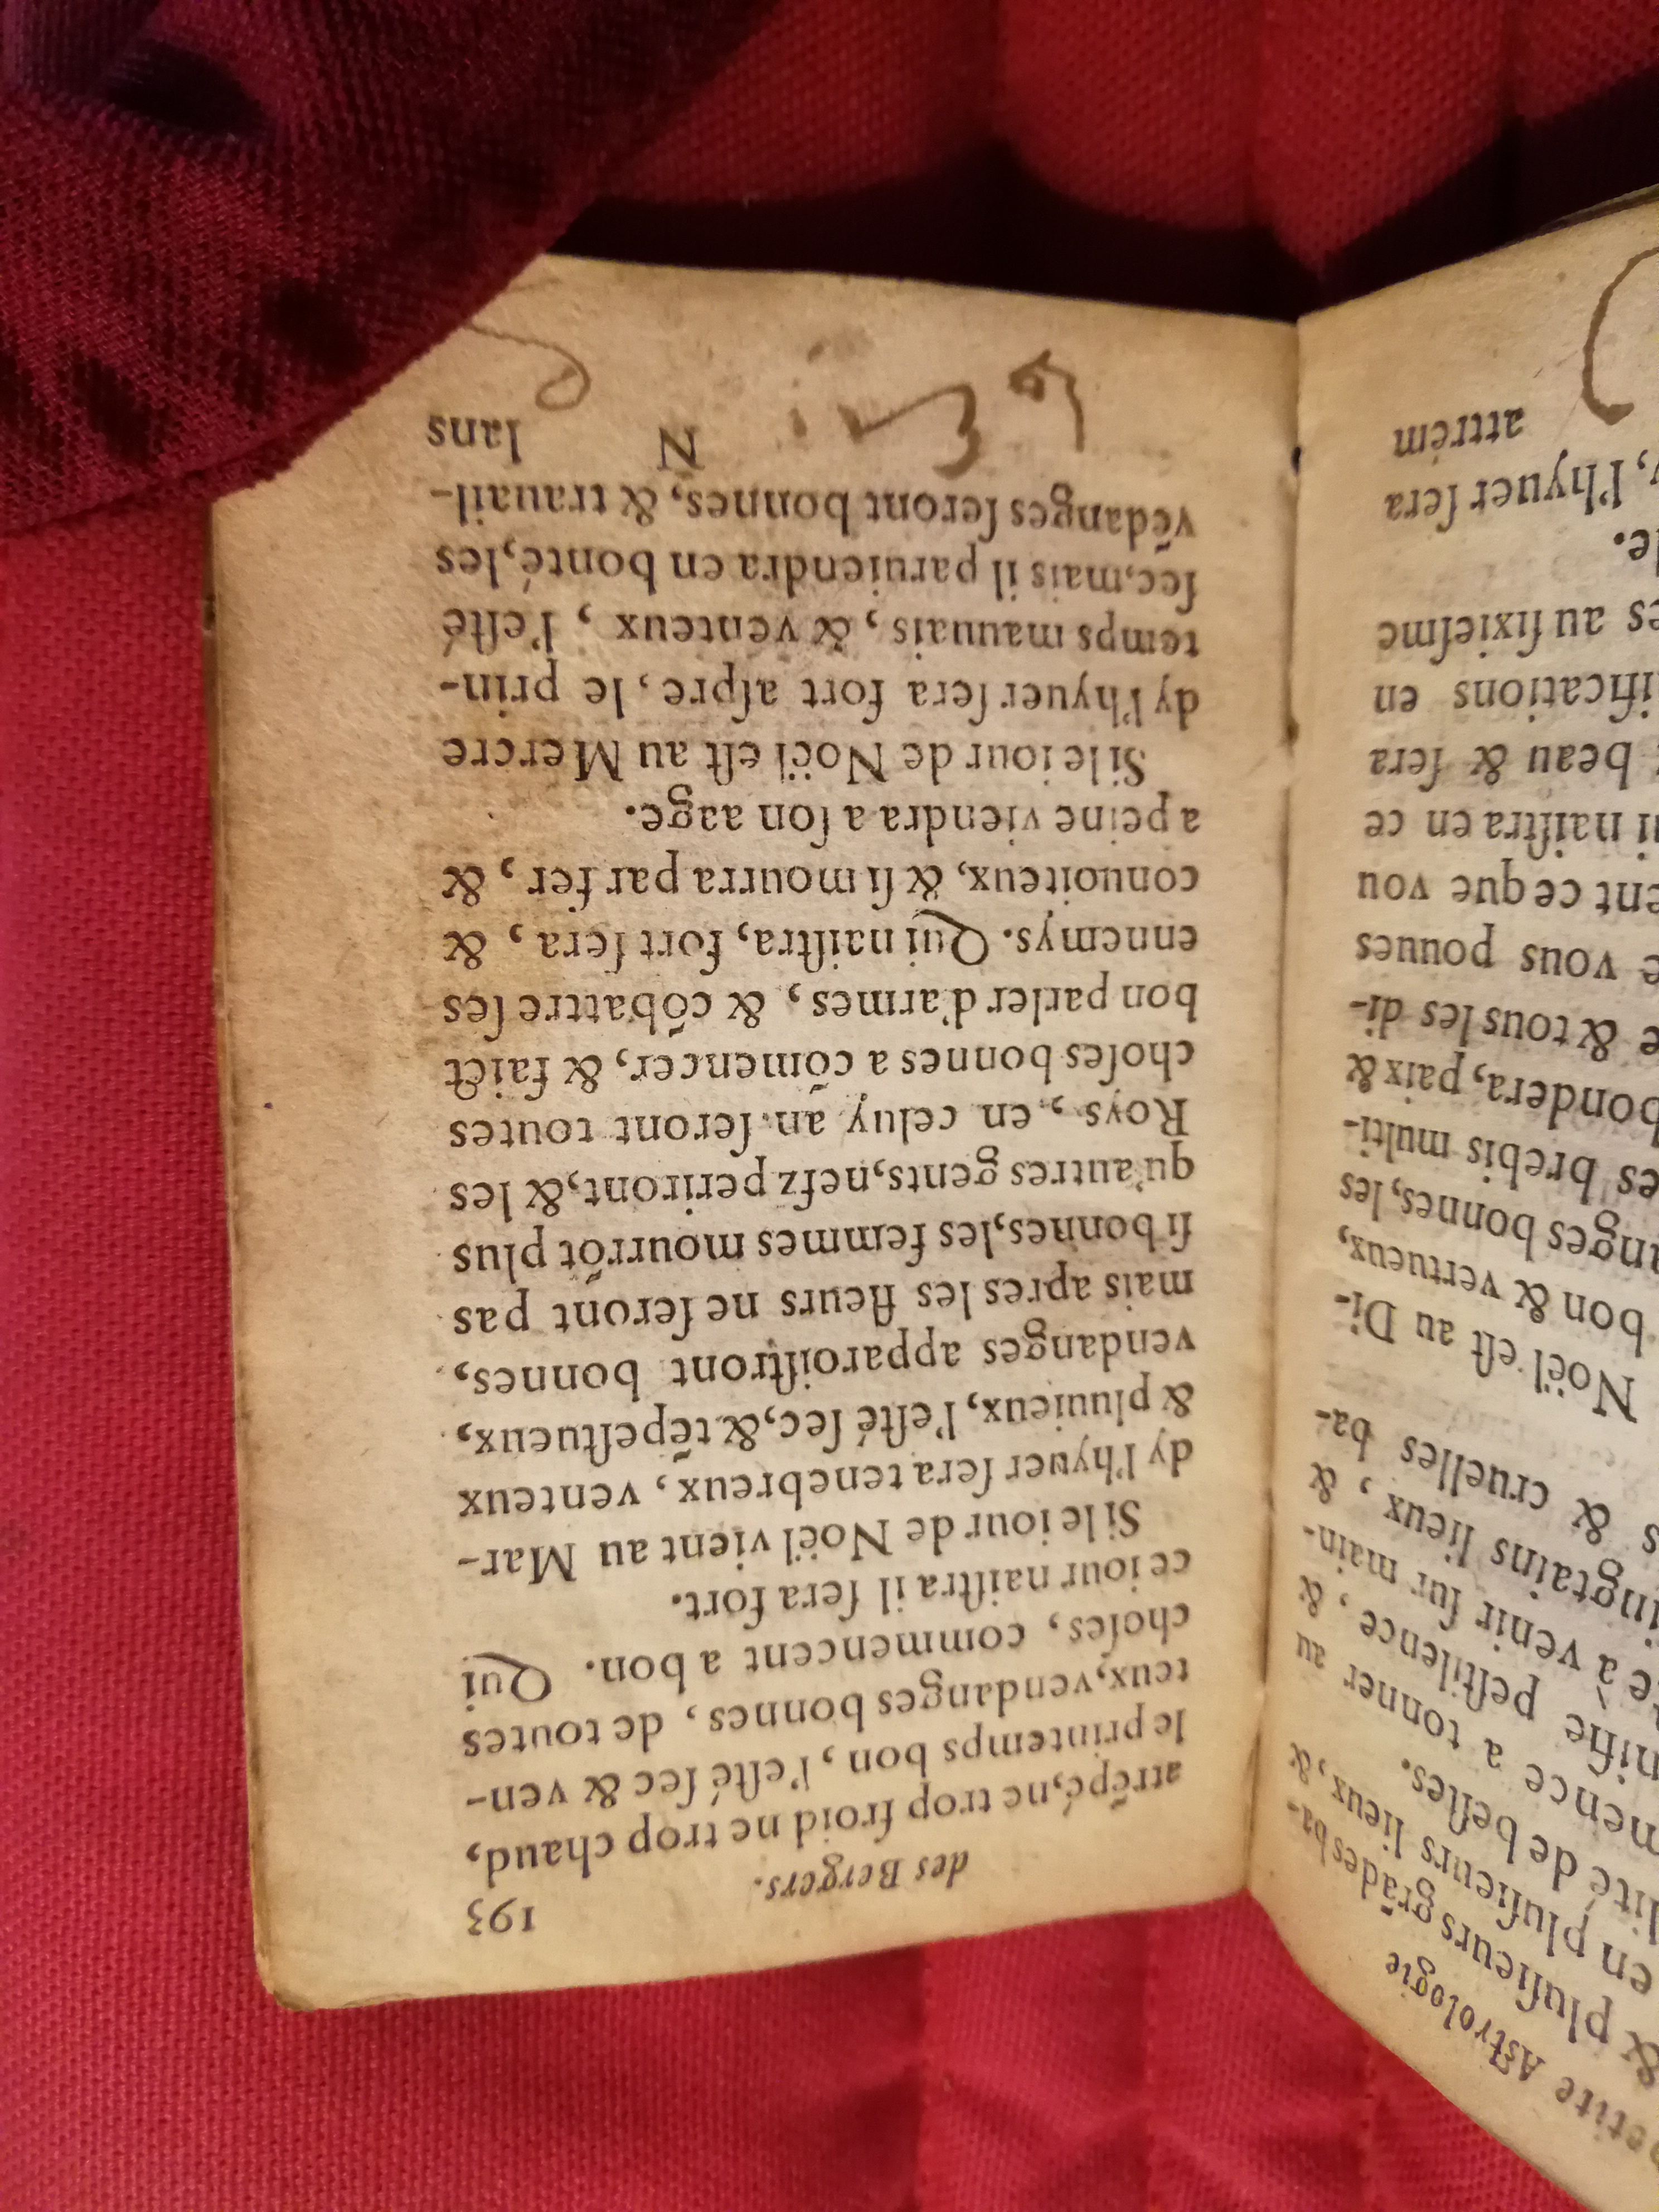 petite Aſtrologie
& pluſieurs grãdes ba-
en pluſieurs lieux, &
lité de beſtes.
mence a tonner au
nifie peſtilence, &
te à venir ſur main-
ingtains lieux, &
s & cruelles ba-
Noël eſt au Di-
bon & vertueux,
anges bonnes, les
es brebis multi-
bondera, paix &
e & tous les di-
e vous pouues
ent ce que vou
i naiſtra en ce
beau & ſera
ifications en
es au ſixieſme
le.
, l'hyuer ſera
attrém
des Bergers. 193
atrẽpé, ne trop froid ne trop chaud,
le printemps bon, l'eſté ſec & ven-
teux, vendanges bonnes, de toutes
choſes, commencent a bon. Qui
ce iour naiſtra il ſera fort.
Si le iour de Noël vient au Mar-
dy l'hyuer ſera tenebreux, venteux
& pluuieux, l'eſté ſec, & tẽpeſtueux,
vendanges apparoiſtront bonnes,
mais apres les fleurs ne ſeront pas
ſi bonnes, les femmes mourrõt plus
qu'autres gents, nefz periront, & les
Roys, en celuy an ſeront toutes
choſes bonnes a cõmencer, & faict
bon parler d'armes, & cõbattre ſes
ennemys. Qui naiſtra, fort ſera, &
conuoiteux, & ſi mourra par fer, &
a peine viendra a ſon aage.
Si le iour de Noël eſt au Mercre
dy l'hyuer ſera fort aſpre, le prin-
temps mauuais, & venteux, l'eſté
ſec, mais il paruiendra en bonté, les
vẽdanges ſeront bonnes, & trauail-
N lans